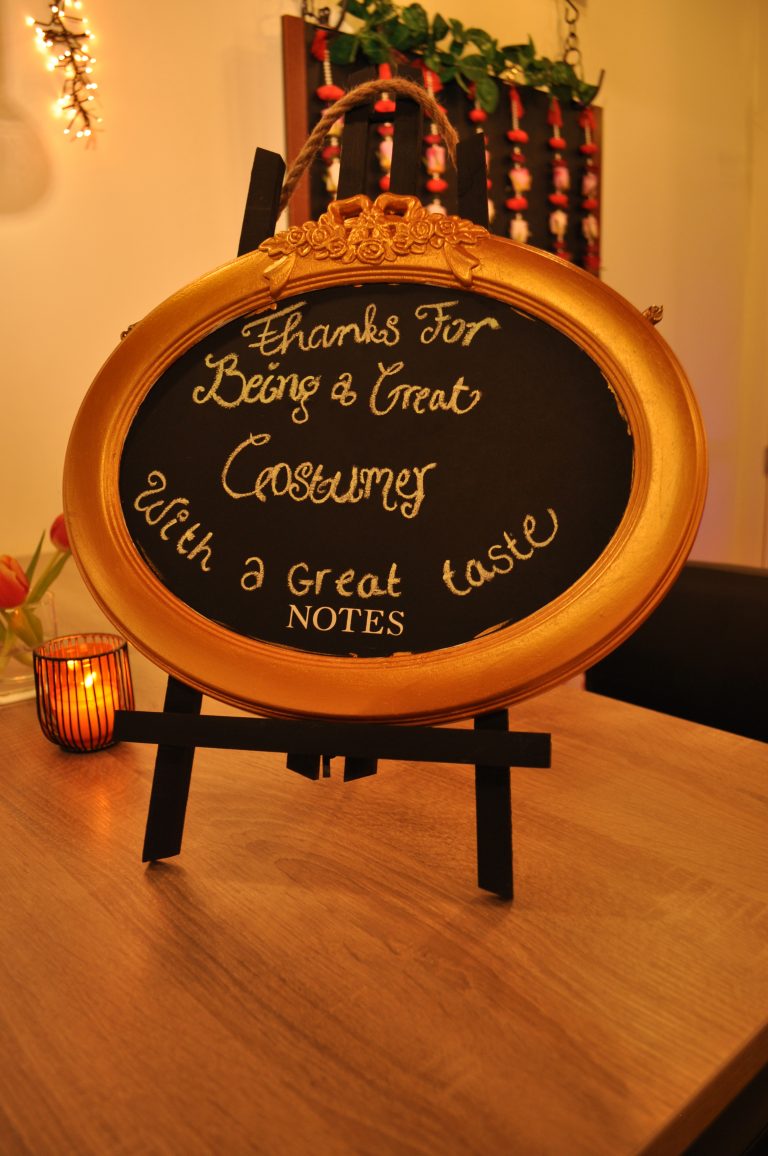 Thanks For
Being a Great
Costumer
With a Great taste
NOTES